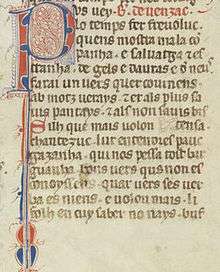 pos vey. G. de uenzac.
Po temps fer reuoluc
quens mostra mala co
panha. e saluatga e es
tranha. de gels e dauras e de neu.
farai un uers que er couinens
ab motz uerays. et als plus sa
uis pantays. e als non sauis bis
Silh que mais uolon tensa
chantezuc. lur entendres pauc
gazanha. qui nos pessa tost bar
guanha. bons uers qui non es
conoyssens. quar uers ses uer
ya es niens. e uo lon mais. li
folh en cuy saber no nays. buf